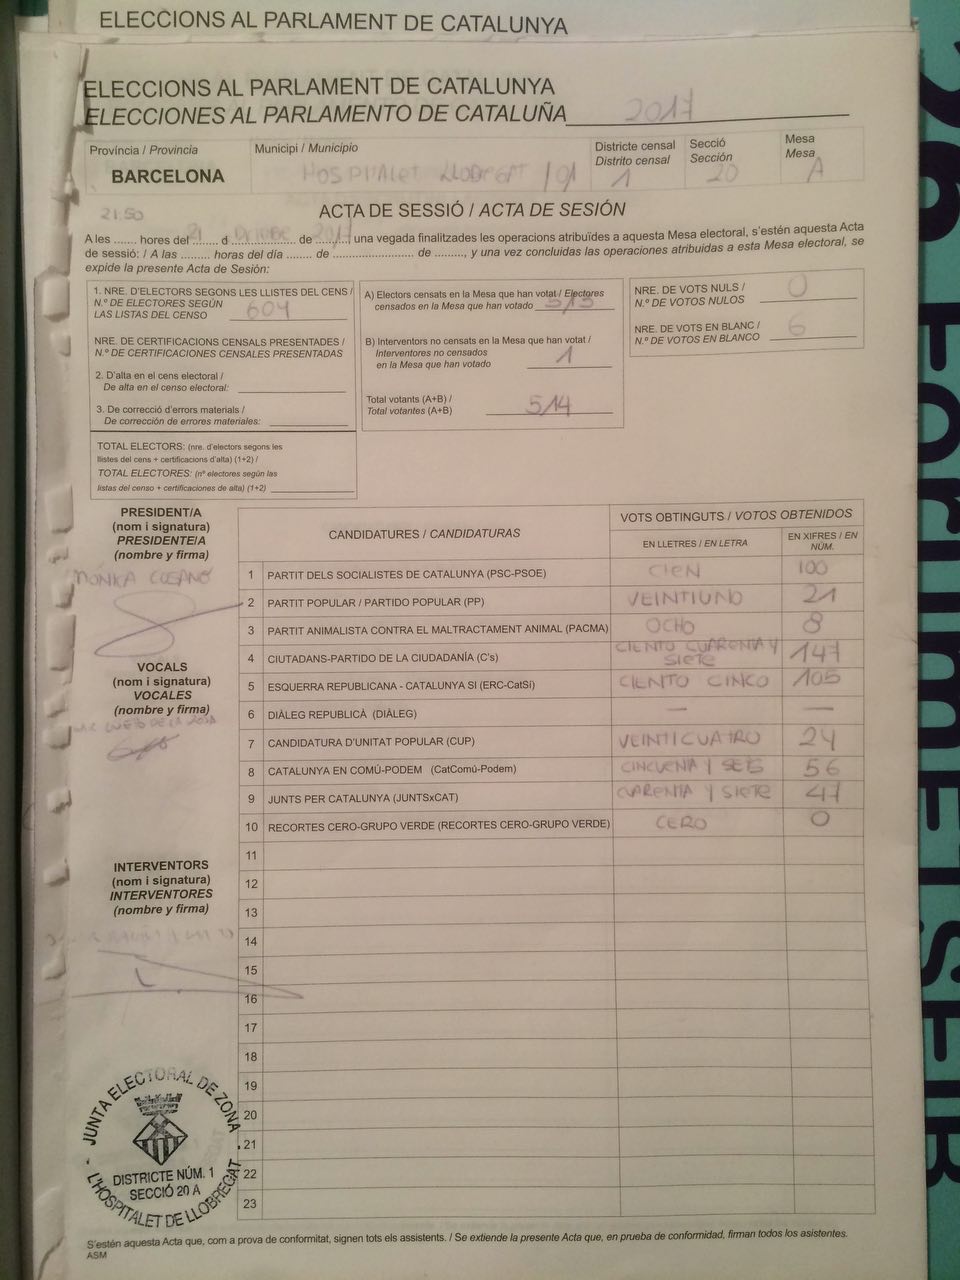 ELECCIONS AL PARLAMENT DE CATALUNYA
ELECCIONS AL PARLAMENT DE CATALUNYA
ELECCIONES AL PARLAMENTO DE CATALUÑA 2017
Província / Provincia
BARCELONA
Municipi / Municipio
HOSPITALET LLOBREGAT 101
Districte censal
Distrito censal
1
Secció
Sección
20
Mesa
Mesa
A
21.50
ACTA DE SESSIÓ / ACTA DE SESIÓN
A les ....... hores del 21 d ................ de 2017, una vegada finalitzades les operacions atribuïdes a aquesta Mesa electoral, s'estén aquesta Acta
de sessió: / A las ......... horas del día ....... de ........................ de ........, y una vez concluidas las operaciones atribuidas a esta Mesa electoral, se
expide la presente Acta de Sesión:
1. NRE. D'ELECTORS SEGONS LES LLISTES DEL CENS /
N.º DE ELECTORES SEGÚN
LAS LISTAS DEL CENSO 604
NRE. DE CERTIFICACIONS CENSALS PRESENTADES /
N.º DE CERTIFICACIONES CENSALES PRESENTADAS
2. D'alta en el cens electoral /
De alta en el censo electoral:
3. De correcció d'errors materials /
De corrección de errores materiales:
TOTAL ELECTORS: (nre. d'electors segons les
llistes del cens + certificacions d'alta) (1+2) /
TOTAL ELECTORES: (nº electores según las
listas del censo + certificaciones de alta) (1+2)
A) Electors censats en la Mesa que han votat / Electores
censados en la Mesa que han votado 513
B) Interventors no censats en la Mesa que han votat /
Interventores no censados
en la Mesa que han votado 1
Total votants (A+B) /
Total votantes (A+B) 514
NRE. DE VOTS NULS /
N.º DE VOTOS NULOS 0
NRE. DE VOTS EN BLANC /
N.º DE VOTOS EN BLANCO 6
PRESIDENT/A
(nom i signatura)
PRESIDENTE/A
(nombre y firma)
MONIKA
VOCALS
(nom i signatura)
VOCALES
(nombre y firma)
INTERVENTORS
(nom i signatura)
INTERVENTORES
(nombre y firma)
CANDIDATURES / CANDIDATURAS
VOTS OBTINGUTS / VOTOS OBTENIDOS
EN LLETRES / EN LETRA
EN XIFRES / EN NÚM.
1 PARTIT DELS SOCIALISTES DE CATALUNYA (PSC-PSOE) CIEN 100
2 PARTIT POPULAR / PARTIDO POPULAR (PP) VEINTIUNO 21
3 PARTIT ANIMALISTA CONTRA EL MALTRACTAMENT ANIMAL (PACMA) OCHO 8
4 CIUTADANS-PARTIDO DE LA CIUDADANÍA (C's) CIENTO CUARENTA Y SIETE 147
5 ESQUERRA REPUBLICANA - CATALUNYA SI (ERC-CatSí) CIENTO CINCO 105
6 DIÀLEG REPUBLICÀ (DIÀLEG) — —
7 CANDIDATURA D'UNITAT POPULAR (CUP) VEINTICUATRO 24
8 CATALUNYA EN COMÚ-PODEM (CatComú-Podem) CINCUENTA Y SEIS 56
9 JUNTS PER CATALUNYA (JUNTSxCAT) CUARENTA Y SIETE 47
10 RECORTES CERO-GRUPO VERDE (RECORTES CERO-GRUPO VERDE) CERO 0
11
12
13
14
15
16
17
18
19
20
21
22
23
JUNTA ELECTORAL DE ZONA
DISTRICTE NÚM. 1
SECCIÓ 20 A
L'HOSPITALET DE LLOBREGAT
S'estén aquesta Acta que, com a prova de conformitat, signen tots els assistents. / Se extiende la presente Acta que, en prueba de conformidad, firman todos los asistentes.
ASM